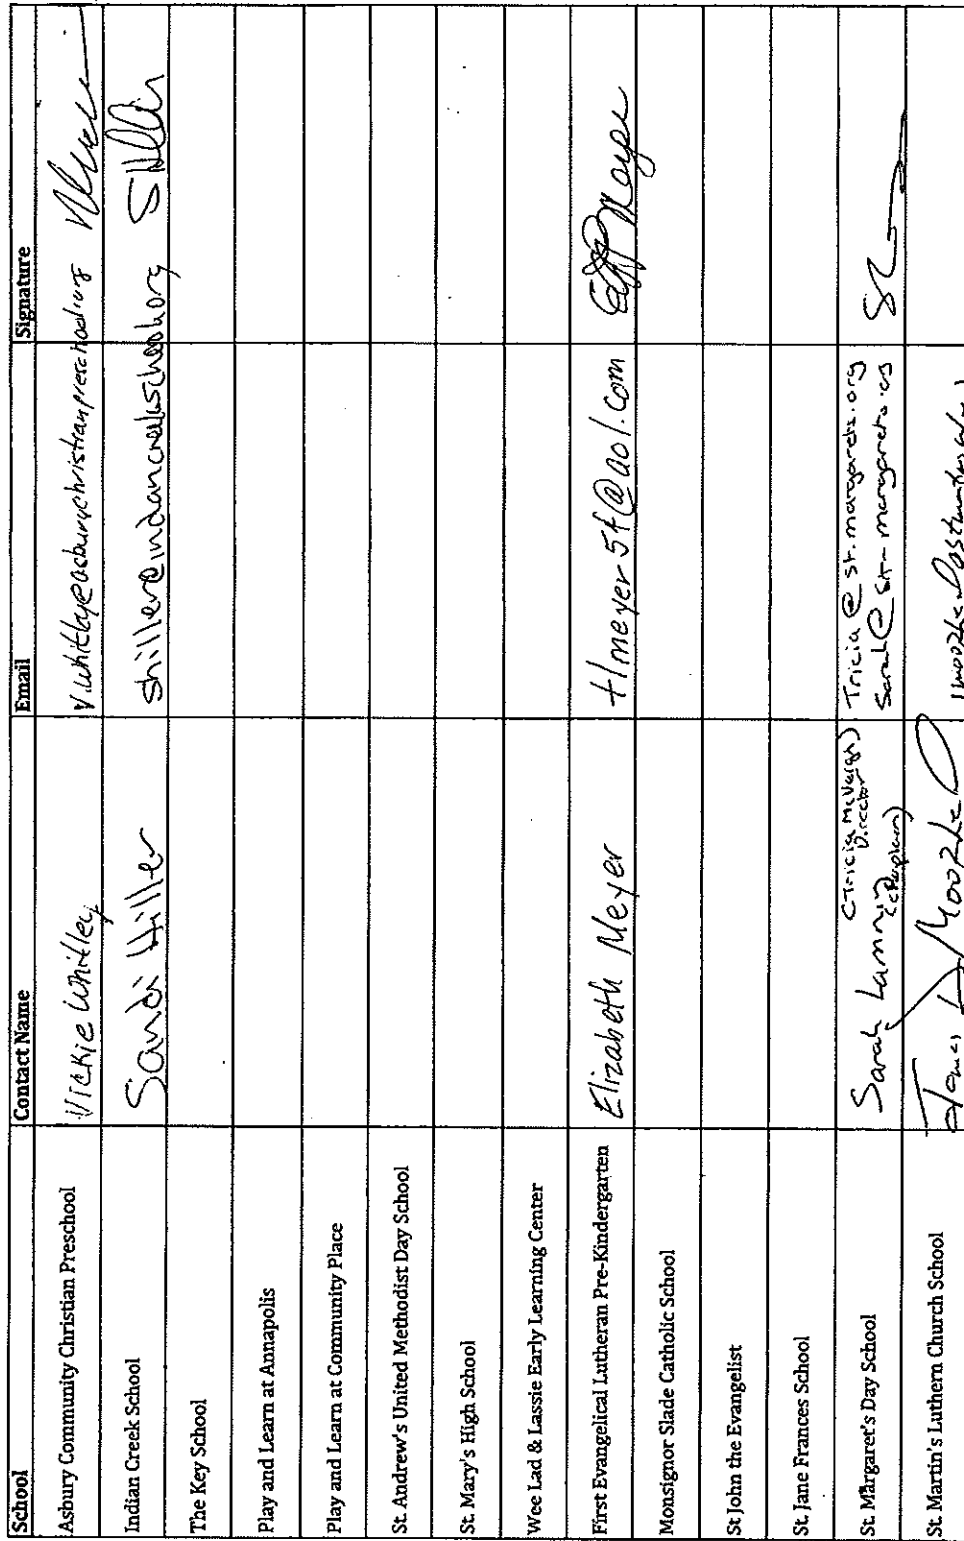 School Contact Name Email Signature
Asbury Community Christian Preschool Vickie Whitley v.whitley@asburychristianpreschool.org
Indian Creek School Sandi Hiller shiller@indiancreekschool.org SHiller
The Key School
Play and Learn at Annapolis
Play and Learn at Community Place
St. Andrew's United Methodist Day School
St. Mary's High School
Wee Lad & Lassie Early Learning Center
First Evangelical Lutheran Pre-Kindergarten Elizabeth Meyer @aol.com Meyer
Monsignor Slade Catholic School
St John the Evangelist
St. Jane Frances School
(Tricia Director Tricia@st.margarets.org
St. Margaret's Day School Sarah (chaplain) Sarah@st-margarets.org
St. Martin's Luthern Church School James